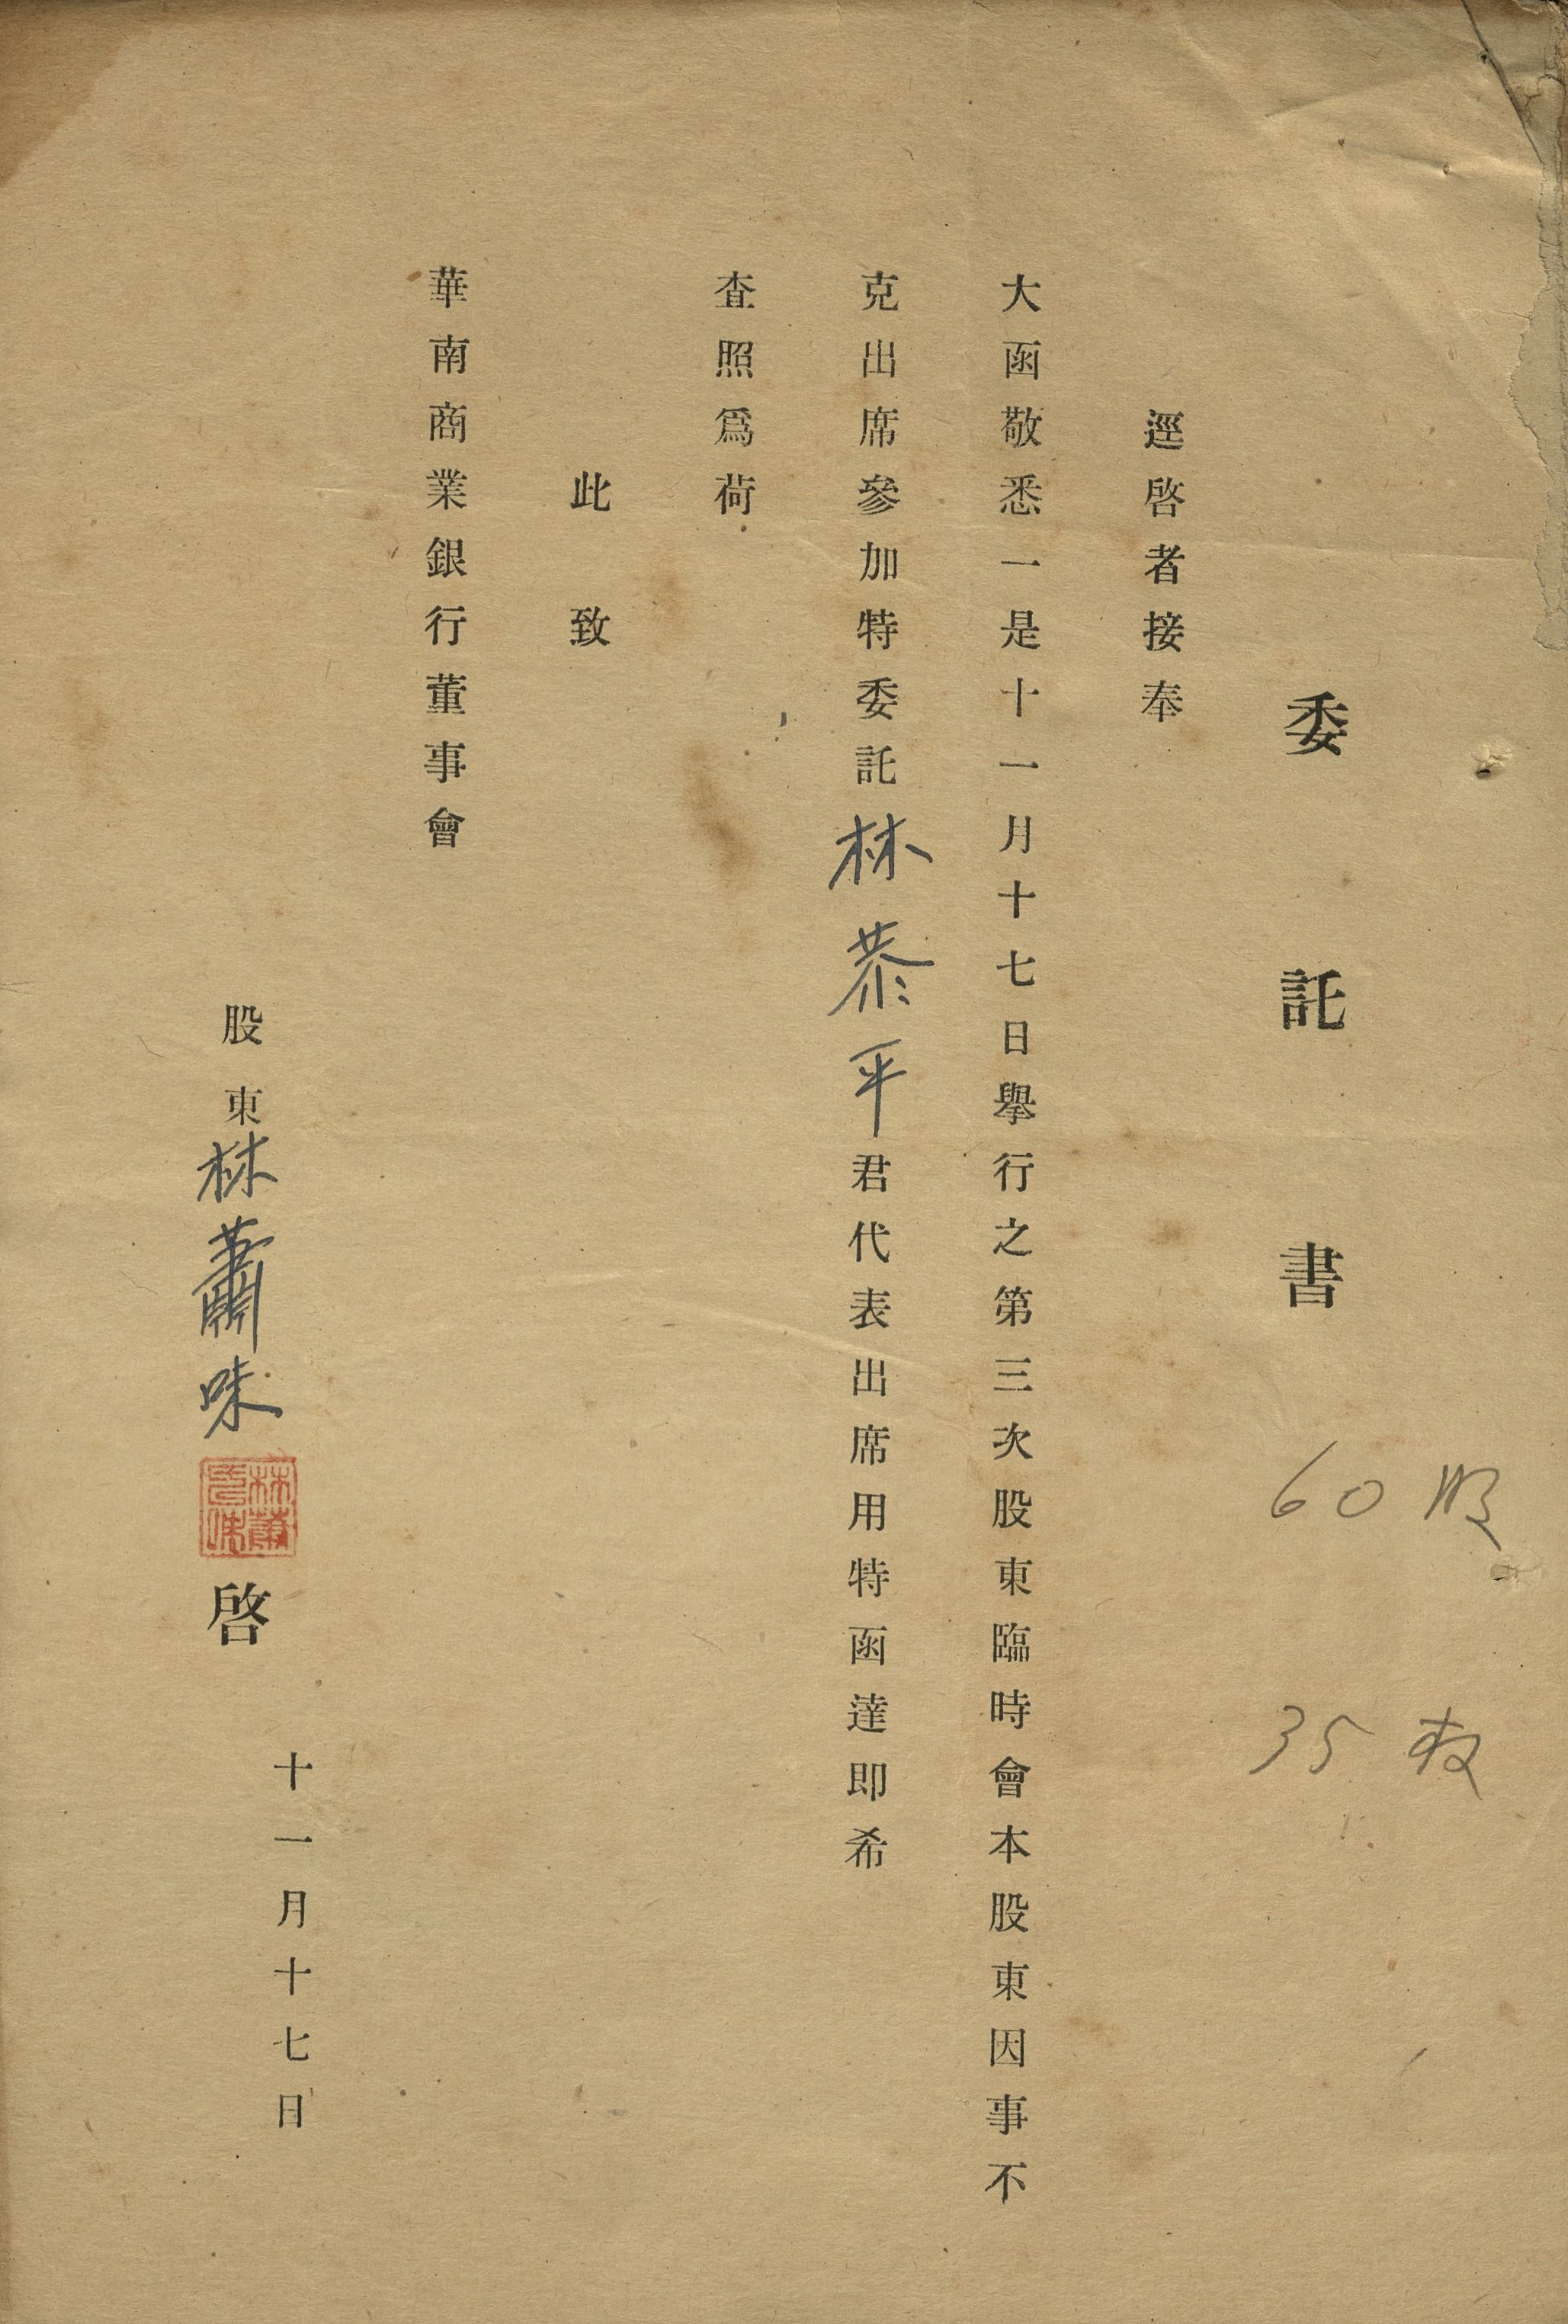 委託書
60股
35权
逕啓者接奉
大函敬悉一是十一月十七日舉行之第三次股東臨時會本股東因事不
克出席參加特委託林恭平君代表出席用特函達即希
查照爲荷
此致
華南商業銀行董事會
股東林蕭味啓
十一月十七日